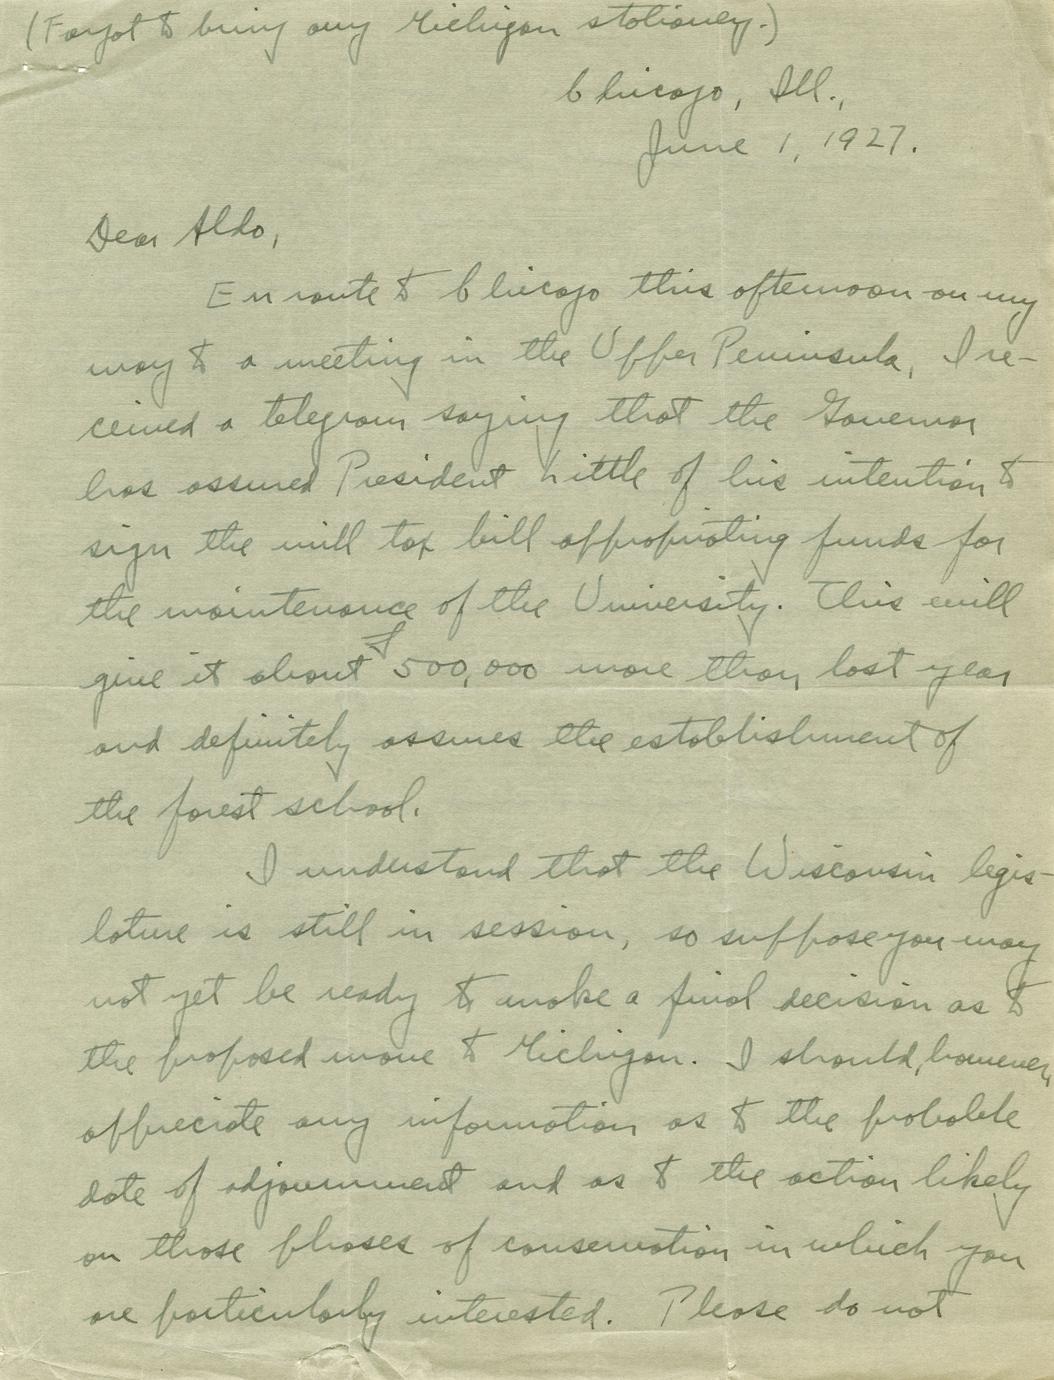 (Forgot to bring any Michigan stationey.)
Chicago, Ill.,
June 1, 1927.
Dear Aldo,
En route to Chicago this afternoon on my
way to a meeting in the Upper Peninsula, I re-
ceived a telegram saying that the Governor
has assured President Little of his intention to
sign the mill tax bill appropriating funds for
the maintenance of the University. This will
give it about $500,000 more than last year
and definitely assures the establishment of
the forest school.
I understand that the Wisconsin legis-
lature is still in session, so suppose you may
not yet be ready to make a final decision as to
the proposed move to Michigan. I should, however,
appreciate any information as to the probable
date of adjournment and as to the action likely
on those phases of conservation in which you
are particularly interested. Please do not